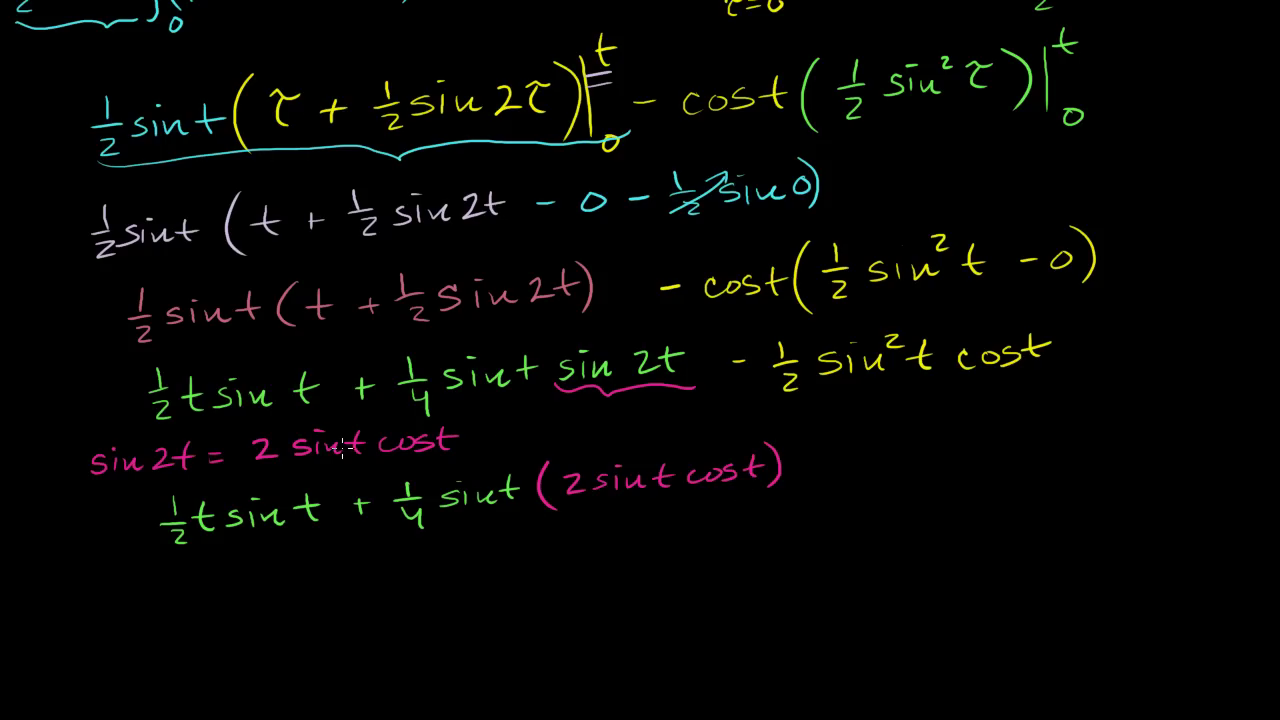 2 0 τ=0 2
1/2 sint (τ + 1/2 sin 2τ) |₀ᵗ - cost (1/2 sin² τ) |₀ᵗ
1/2 sint (t + 1/2 sin 2t - 0 - 1/2 sin 0)
1/2 sint (t + 1/2 sin 2t) - cost (1/2 sin² t - 0)
1/2 t sin t + 1/4 sint sin 2t - 1/2 sin² t cost
sin 2t = 2 sint cost
1/2 t sin t + 1/4 sint (2 sint cost)